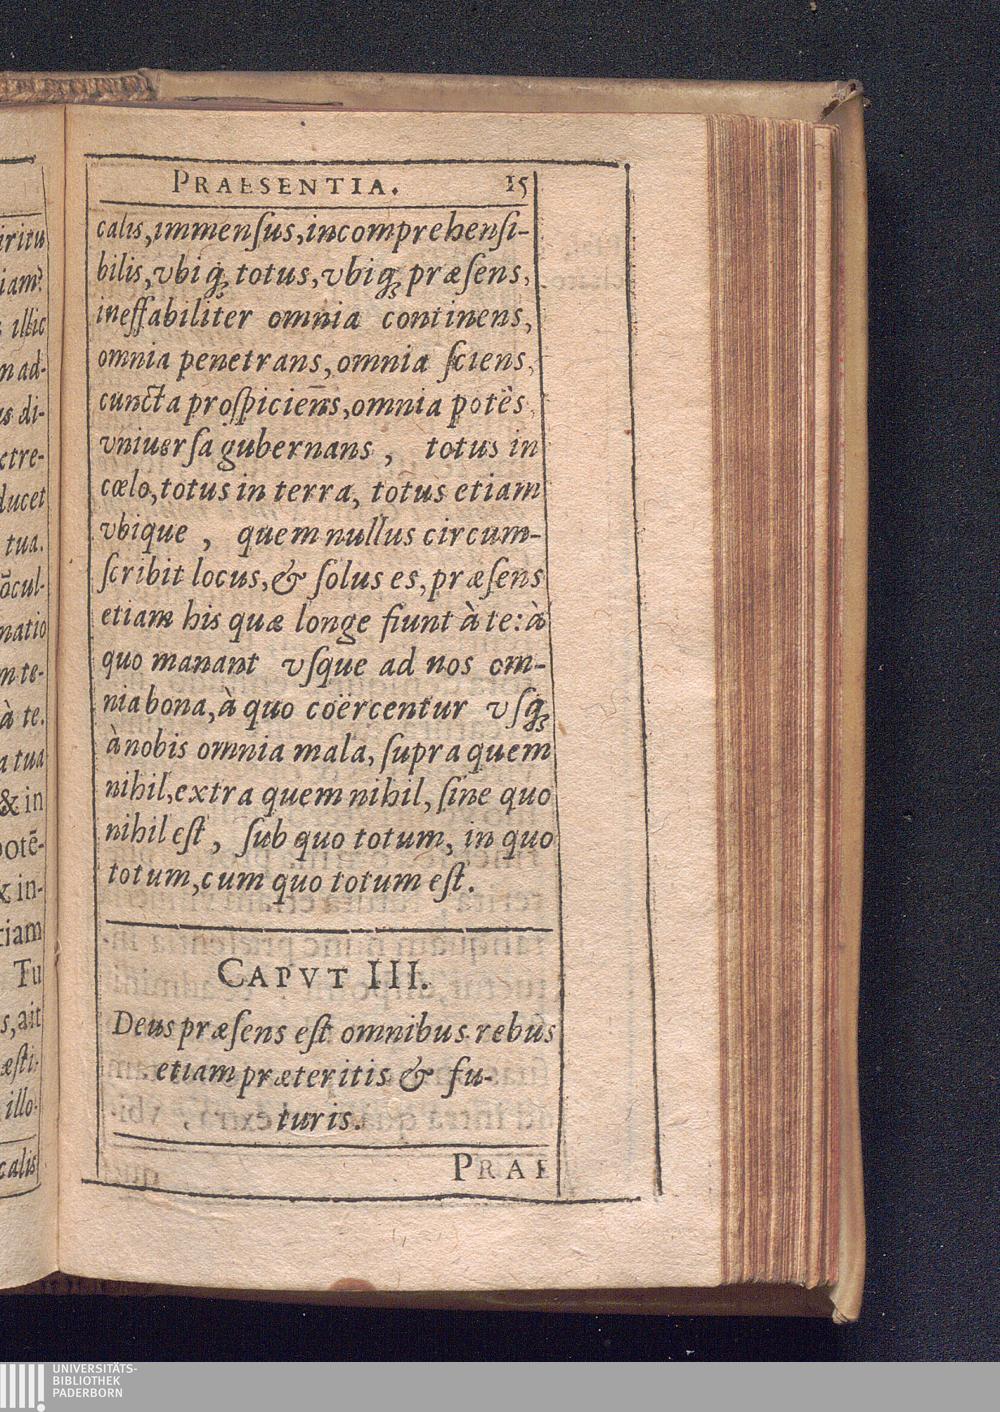 PRAESENTIA. 15
calis,immenſus,incomprehenſi-
bilis,vbiq; totus,vbiq; præſens,
ineffabiliter omnia continens,
omnia penetrans,omnia ſciens,
cuncta proſpiciens,omnia potēs,
vniuerſa gubernans, totus in
cœlo,totus in terra, totus etiam
vbique, quem nullus circum-
ſcribit locus,& ſolus es,præſens
etiam his quæ longe fiunt à te:à
quo manant vſque ad nos om-
nia bona,à quo coërcentur vſq;
à nobis omnia mala,ſupra quem
nihil,extra quem nihil,ſine quo
nihil eſt, ſub quo totum, in quo
totum,cum quo totum eſt.
CAPVT III.
Deus præſens eſt omnibus rebus
etiam præteritis & fu-
turis.
PRAE
iritu
iam?
illic
n ad-
us di-
xtre-
ducet
tua.
ōcul-
natio
m te-
à te.
a tua
& in
potē-
& in-
tiam
Tu
s,ait
æſti-
illo-
calis
UNIVERSITÄTS-
BIBLIOTHEK
PADERBORN